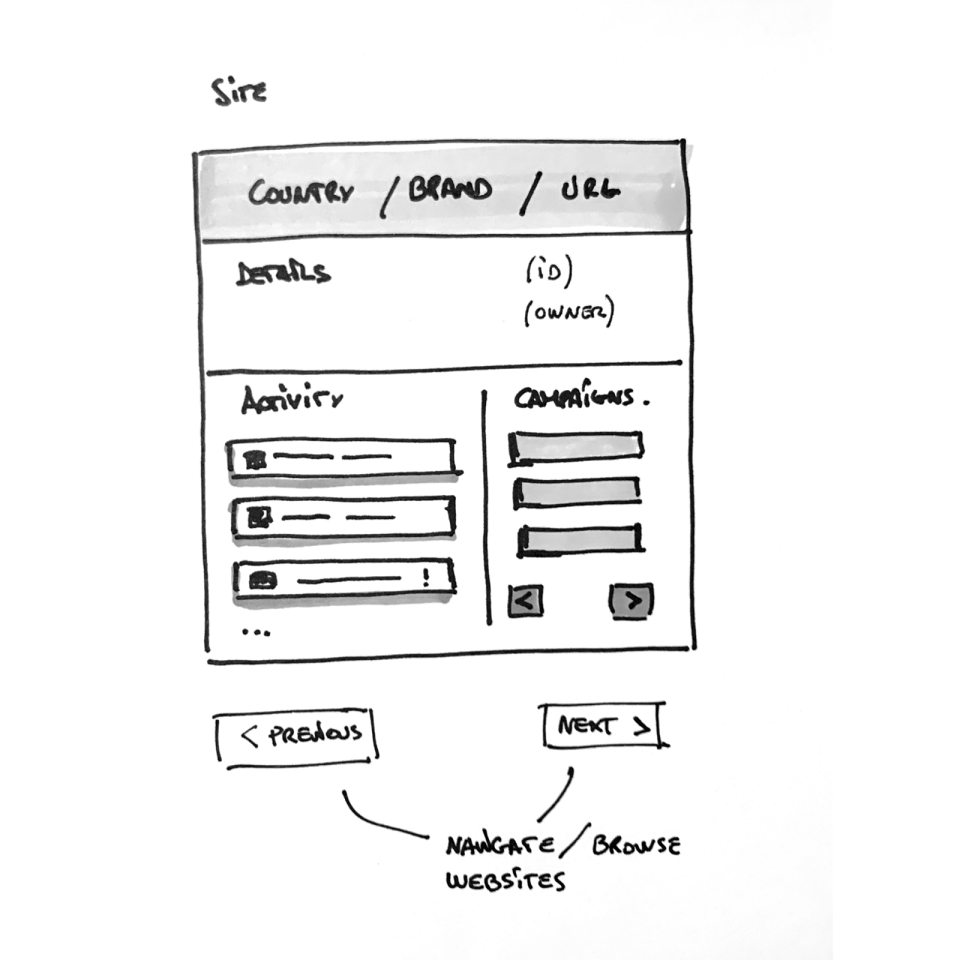 Site
COUNTRY / BRAND / URL
DETAILS
(ID)
(OWNER)
Activity
CAMPAIGNS.
!
...
< >
< PREVIOUS
NEXT >
NAVIGATE / BROWSE
WEBSITES